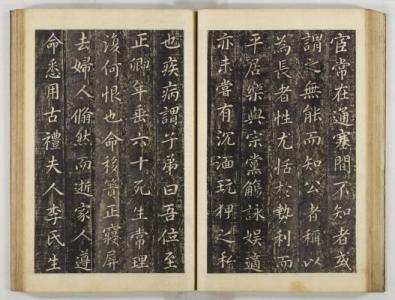 官常在通塞間不知者或
謂之無能而知公者稱以
為長者性尤恬於勢利而
平居樂與宗黨觴詠娛適
亦未嘗有沉湎玩狎之私
也疾病謂子弟曰吾位至
正卿年垂六十死生常理
復何恨也命移簀正寢屏
去婦人翛然而逝家人遵
命悉用古禮夫人李氏生